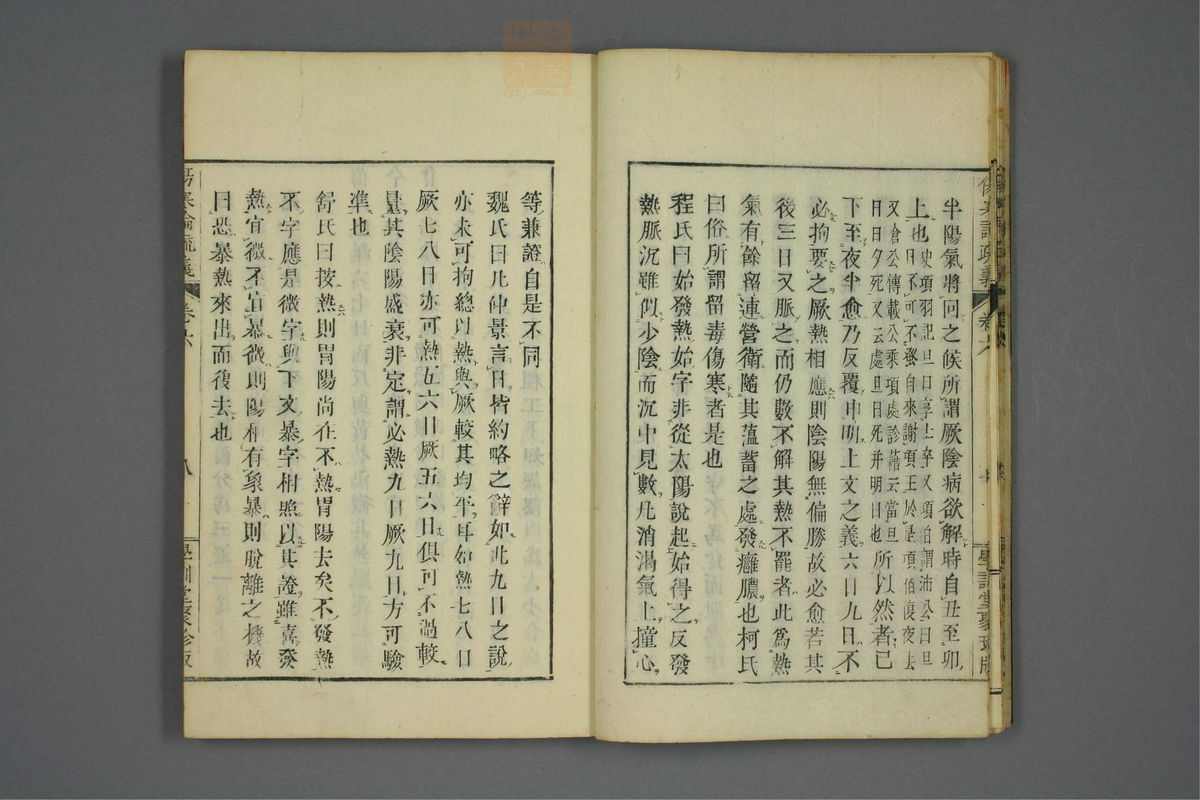 半陽氣將回之候所謂厥陰病欲解時自丑至卯
上也史項羽紀旦日享士卒又項伯謂沛公曰旦
日不可不蚤自來謝項王於是項伯復夜去
又倉公傳載公乘項處診藉云當旦
日日夕死又云處旦日死并明日也所以然者已
下至夜半愈乃反覆申明上文之義六日九日不
必拘要之厥熱相應則陰陽無偏勝故必愈若其
後三日又脈之而仍數不解其熱不罷者此爲熱
氣有餘留連營衛隨其薀蓄之處發癰膿也柯氏
曰俗所謂留毒傷寒者是也
程氏曰始發熱始字非從太陽說起始得之反發
熱脈沉雖似少陰而沉中見數凡消渴氣上撞心
傷寒論疏義
卷六
學訓堂聚珍版
等兼證自是不同
魏氏曰凡仲景言日皆約略之辭如此九日之說
亦未可拘總以熱與厥較其均平耳如熱七八日
厥七八日亦可熱五六日厥五六日俱可不過較
量其陰陽盛衰非定謂必熱九日厥九日方可驗
準也
舒氏曰按熱則胃陽尚在不熱胃陽去矣不發熱
不字應是微字與下文暴字相照以其證雖喜發
熱宜微不宜暴微則陽相有象暴則脫離之機故
曰恐暴熱來出而後去也
傷寒論疏義
卷六
八
學訓堂聚珍版